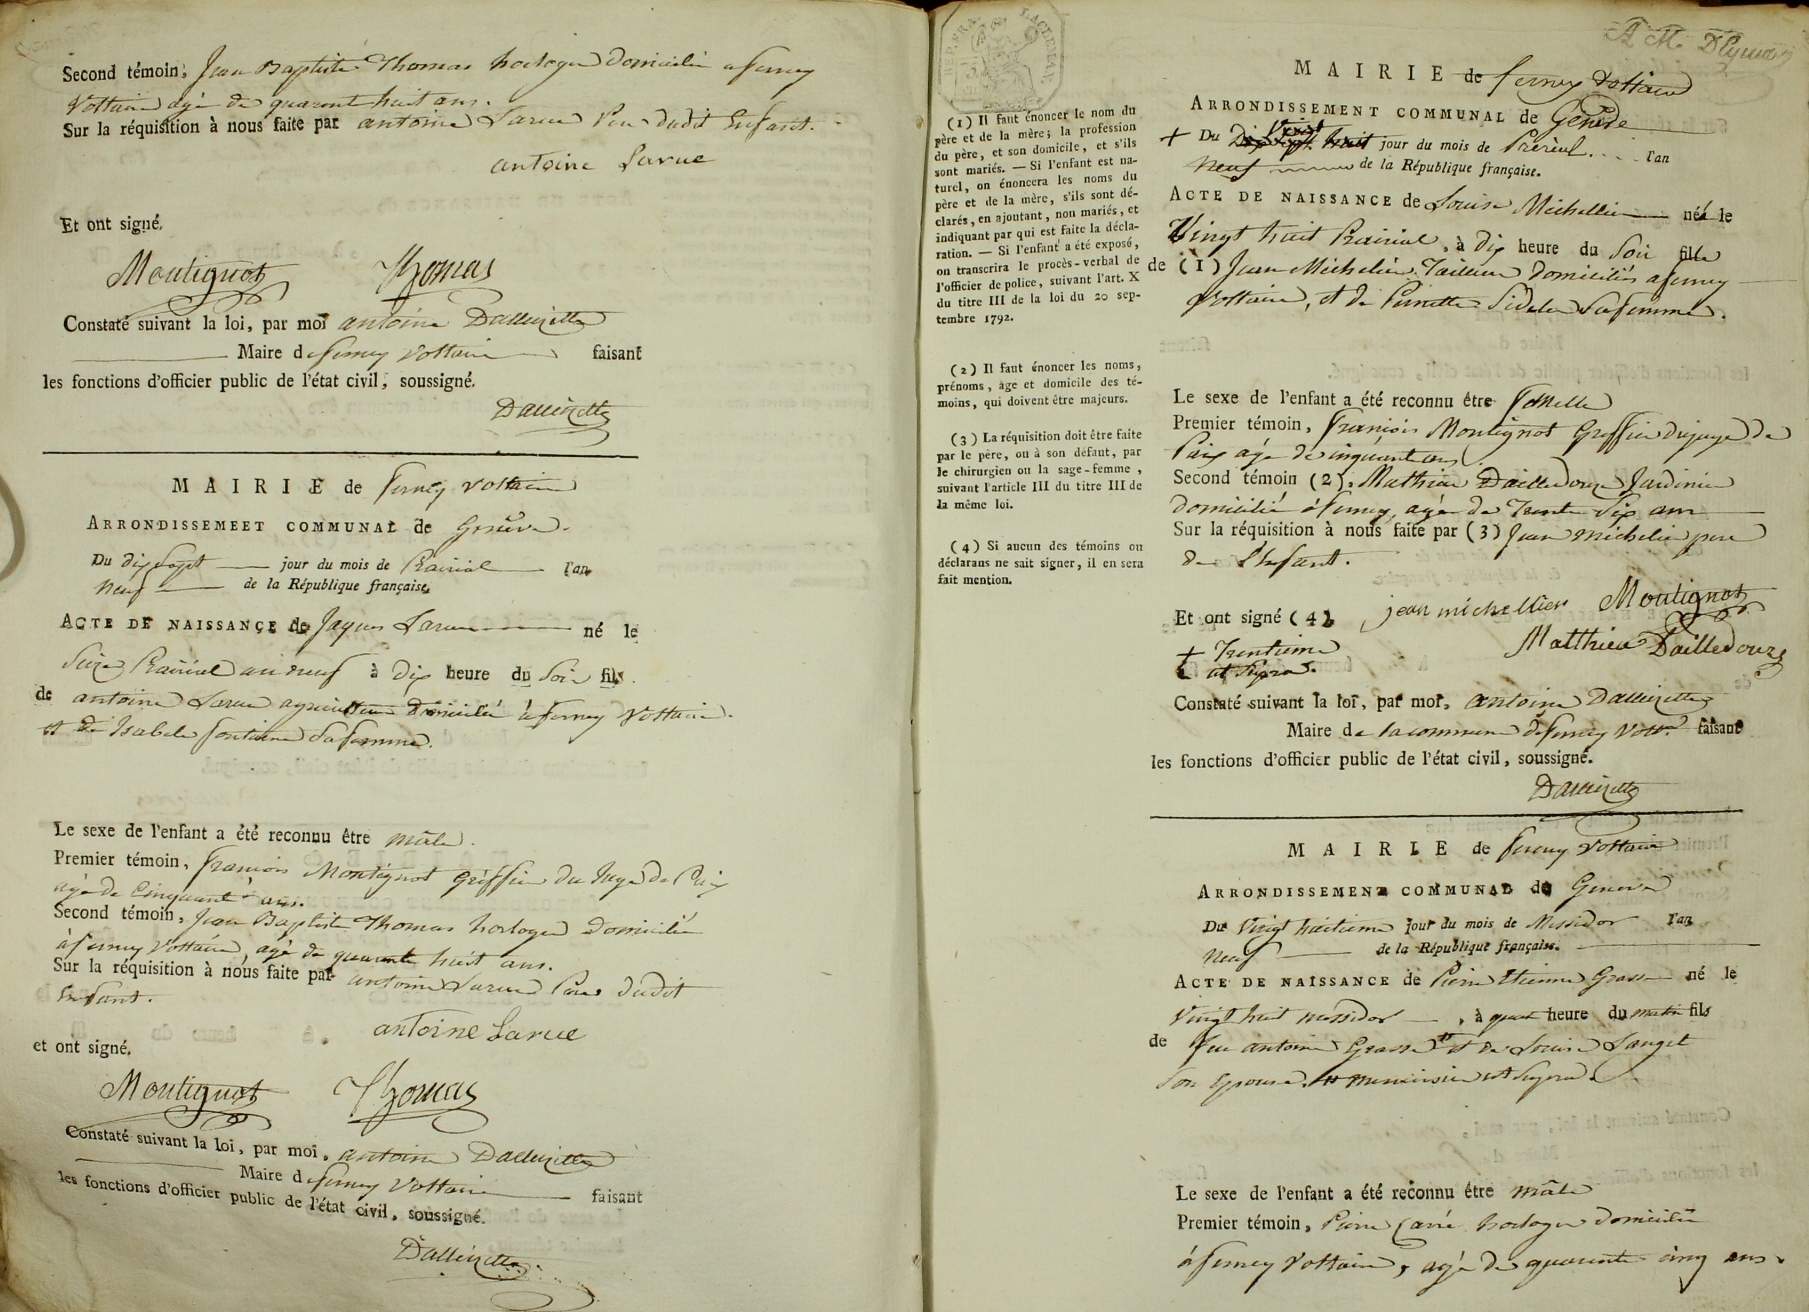 Second témoin, Jean Baptiste Thomas horloger domicilié a ferney
Voltaire agé de quarent huit ans.
Sur la réquisition à nous faite par antoine Larue Pere dudit Enfant.
antoine Larue
Et ont signé.
Montignot Thomas
Constaté suivant la loi, par moi antoine Dallizette
Maire de ferney Voltaire faisant
les fonctions d'officier public de l'état civil, soussigné.
Dallizette
MAIRIE de ferney Voltaire
ARRONDISSEMEET COMMUNAL de Genève.
Du dix sept jour du mois de Prairial l'an
Neuf de la République française.
ACTE DE NAISSANCE de Jaques Larue né le
Seize Prairial an neuf à dix heure du Soir fils
de antoine Larue agriculteur Domicilié à ferney Voltaire.
et de Isabele fontaine Sa femme.
Le sexe de l'enfant a été reconnu être mâle.
Premier témoin, François Montignot Greffier du Juge de Paix
agé de Cinquante ans.
Second témoin, Jean Baptiste Thomas horloger Domicilié
à ferney Voltaire, agé de quarante huit ans.
Sur la réquisition à nous faite par antoine Larue Pere dudit
Enfant.
antoine Larue
et ont signé.
Montignot Thomas
Constaté suivant la loi, par moi, antoine Dallizette
Maire de ferney Voltaire faisant
les fonctions d'officier public de l'état civil, soussigné.
Dallizette
REP. FRA.
(1) Il faut énoncer le nom du
père et de la mère; la profession
du père, et son domicile, et s'ils
sont mariés. — Si l'enfant est na-
turel, on énoncera les noms du
père et de la mère, s'ils sont dé-
clarés, en ajoutant, non mariés, et
indiquant par qui est faite la décla-
ration. — Si l'enfant a été exposé,
on transcrira le procès-verbal de
l'officier de police, suivant l'art. X
du titre III de la loi du 20 sep-
tembre 1792.
(2) Il faut énoncer les noms,
prénoms, âge et domicile des té-
moins, qui doivent être majeurs.
(3) La réquisition doit être faite
par le père, ou à son défaut, par
le chirurgien ou la sage-femme,
suivant l'article III du titre III de
la même loi.
(4) Si aucun des témoins ou
déclarans ne sait signer, il en sera
fait mention.
MAIRIE de ferney Voltaire
ARRONDISSEMENT COMMUNAL de Genève
+ Du jour du mois de Prérial l'an
Neuf de la République française.
ACTE DE NAISSANCE de Louise Michellier née le
Vingt huit Prairial, à dix heure du Soir fille
de (1) Jean Michelier Tailleur domiciliés a ferney
Voltaire, et de Pernette Sa femme.
Le sexe de l'enfant a été reconnu être femelle
Premier témoin, François Montignot Greffier du juge de
Paix agé de cinquante ans
Second témoin (2), Mathieu Dailledouze Jardinier
domicilié à ferney, agé de Trente Six ans
Sur la réquisition à nous faite par (3) Jean michelier pere
de L'Enfant.
Et ont signé (4) jean michellier Montignot
+ Trentieme Matthieu Dailledouze
ut Supra.
Constaté suivant la loi, par moi, antoine Dallizette
Maire de la commune de ferney Volt.e faisant
les fonctions d'officier public de l'état civil, soussigné.
Dallizette
MAIRIE de ferney Voltaire
ARRONDISSEMENT COMMUNAL de Geneve
Du Vingt huitieme jour du mois de Messidor l'an
Neuf de la République française.
ACTE DE NAISSANCE de Pierre Etienne Grasse né le
Vingt huit messidor, à quatre heure du matin fils
de feu antoine Grasse et de Louise Sauget
Son Epouse. menuisier ut Supra.
Le sexe de l'enfant a été reconnu être mâle
Premier témoin, Pierre Carré horloger domicilié
à ferney Voltaire, agé de quarante cinq ans.